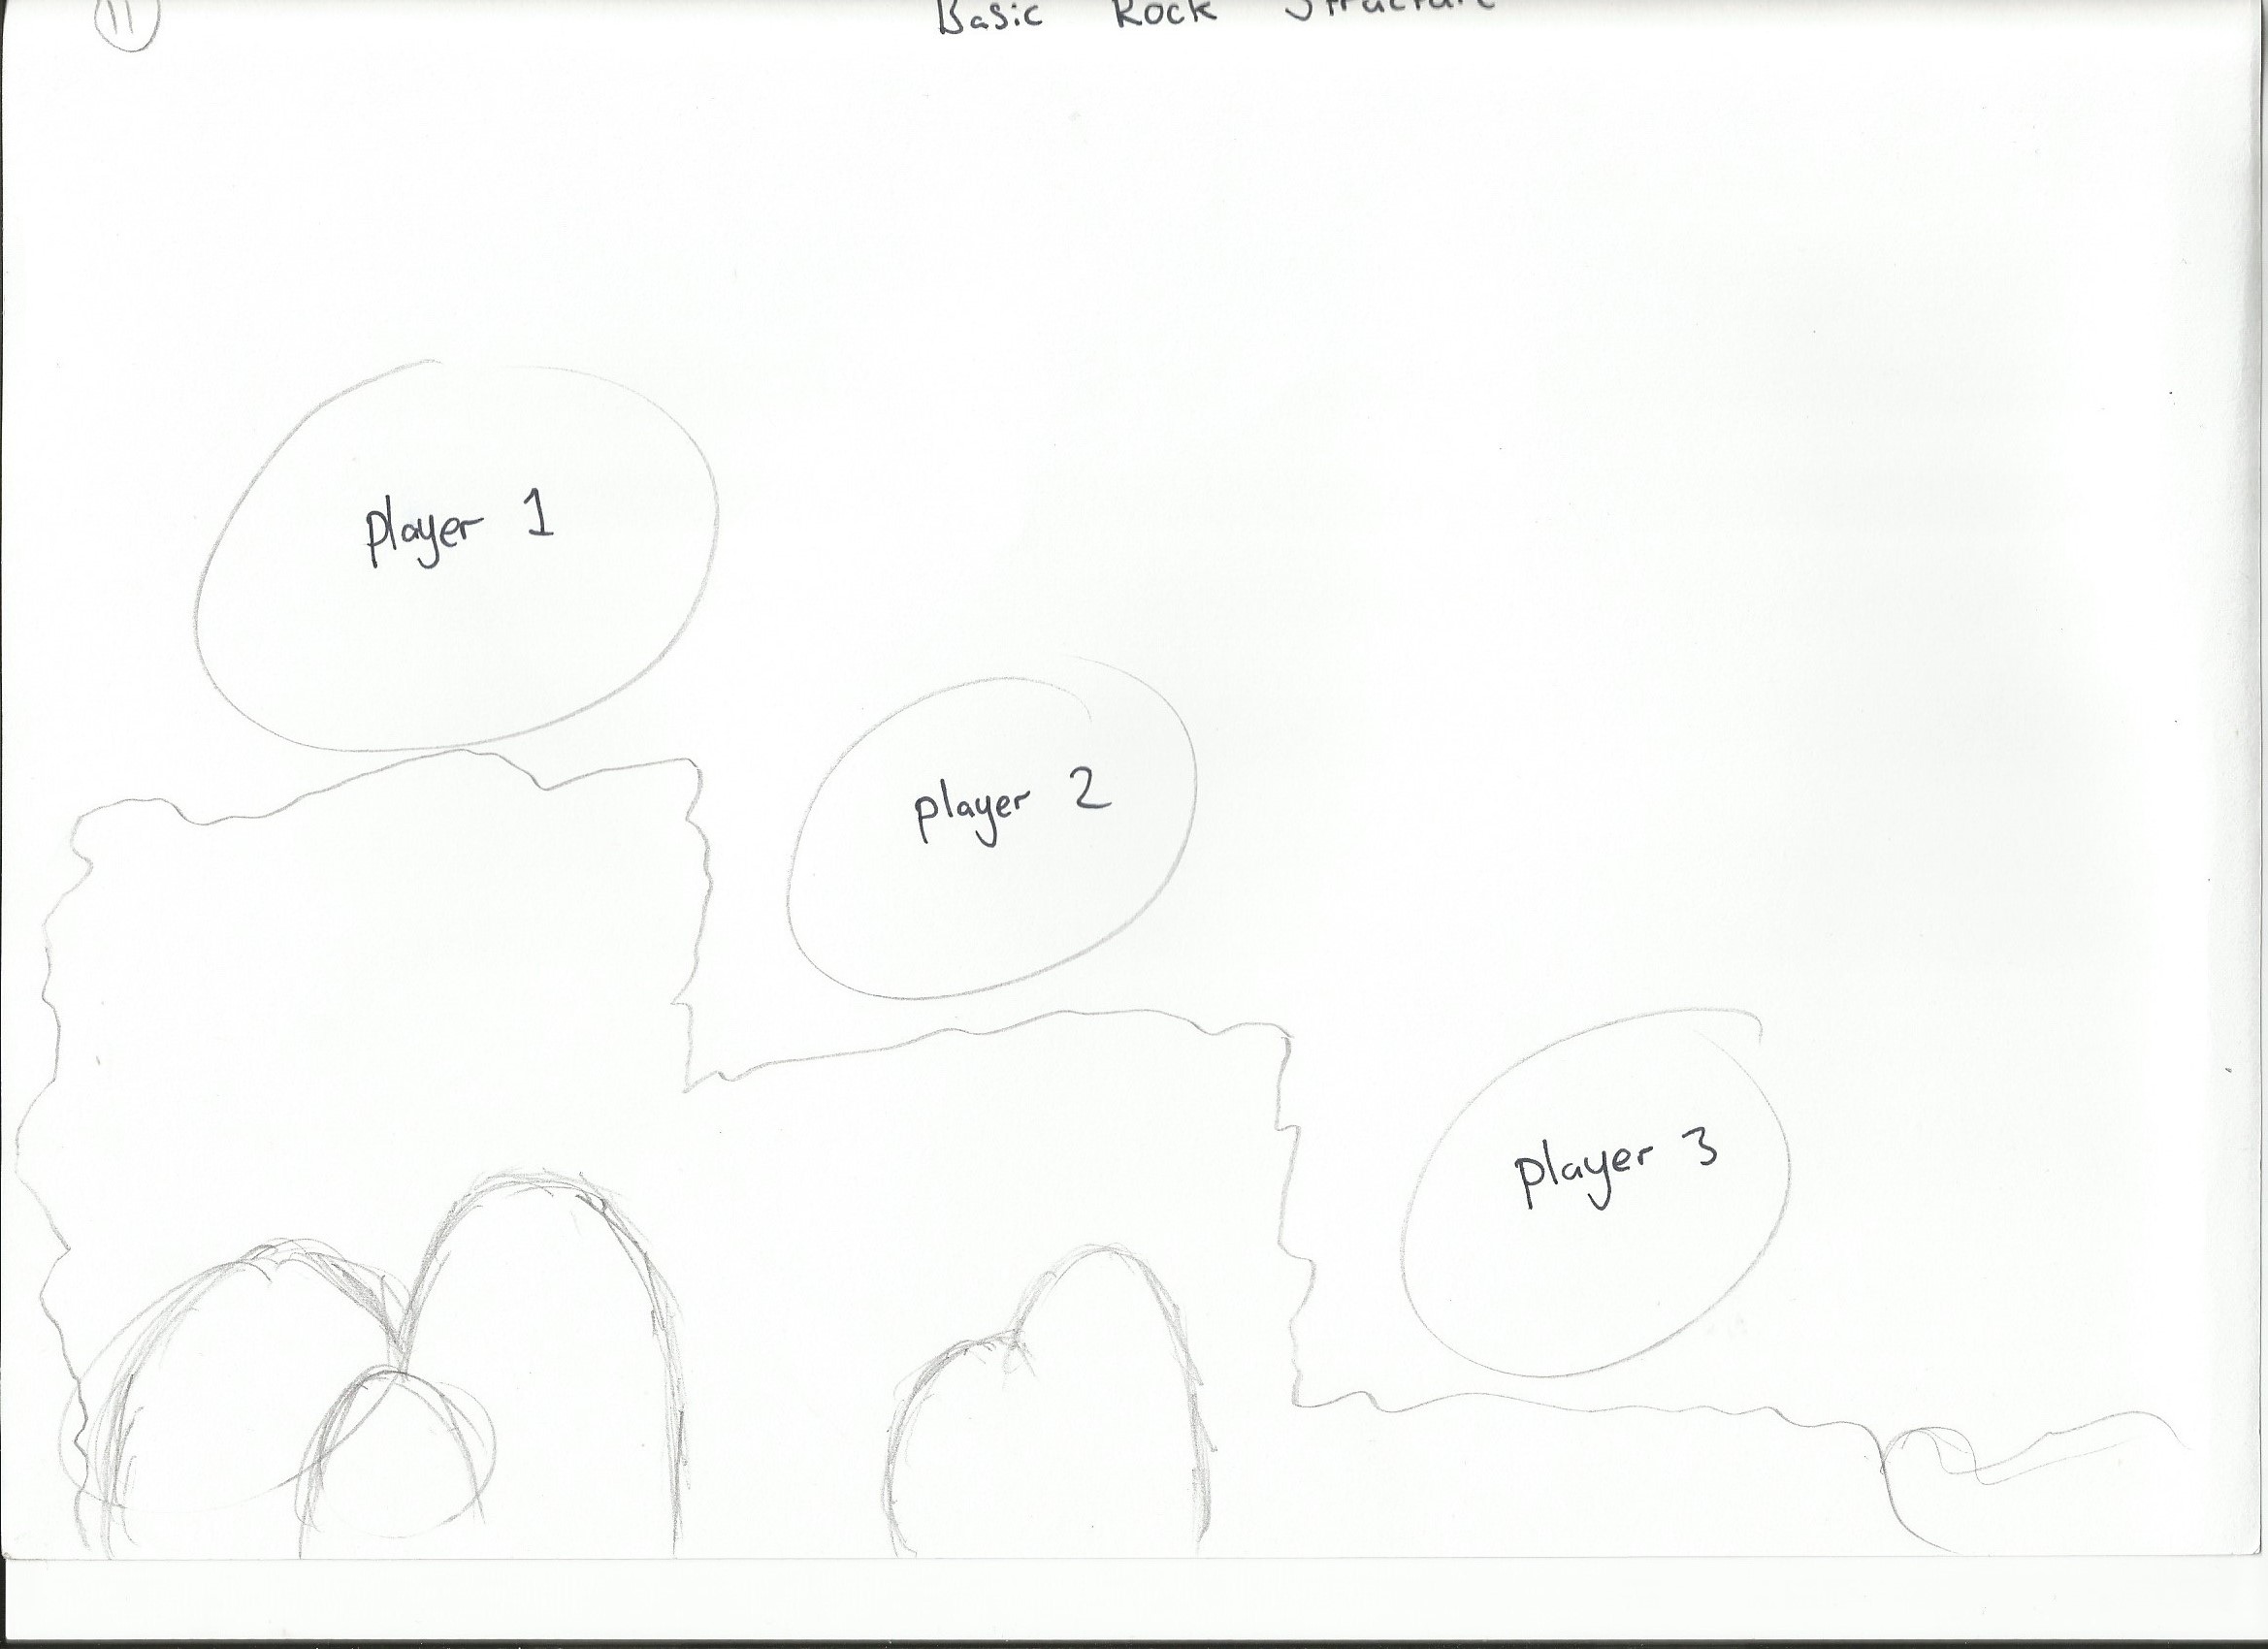 11
Basic Rock Structure
player 1
player 2
player 3